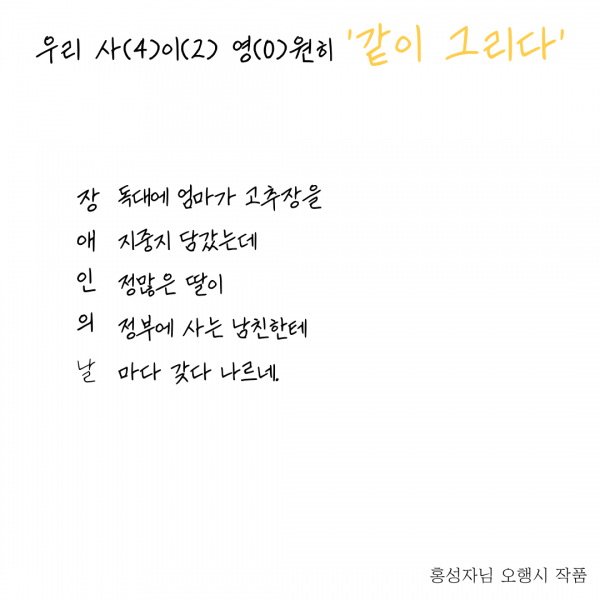 우리 사(4)이(2) 영(0)원히 '같이 그리다'
장 독대에 엄마가 고추장을
애 지중지 담갔는데
인 정많은 딸이
의 정부에 사는 남친한테
날 마다 갖다 나르네.
홍성자님 오행시 작품